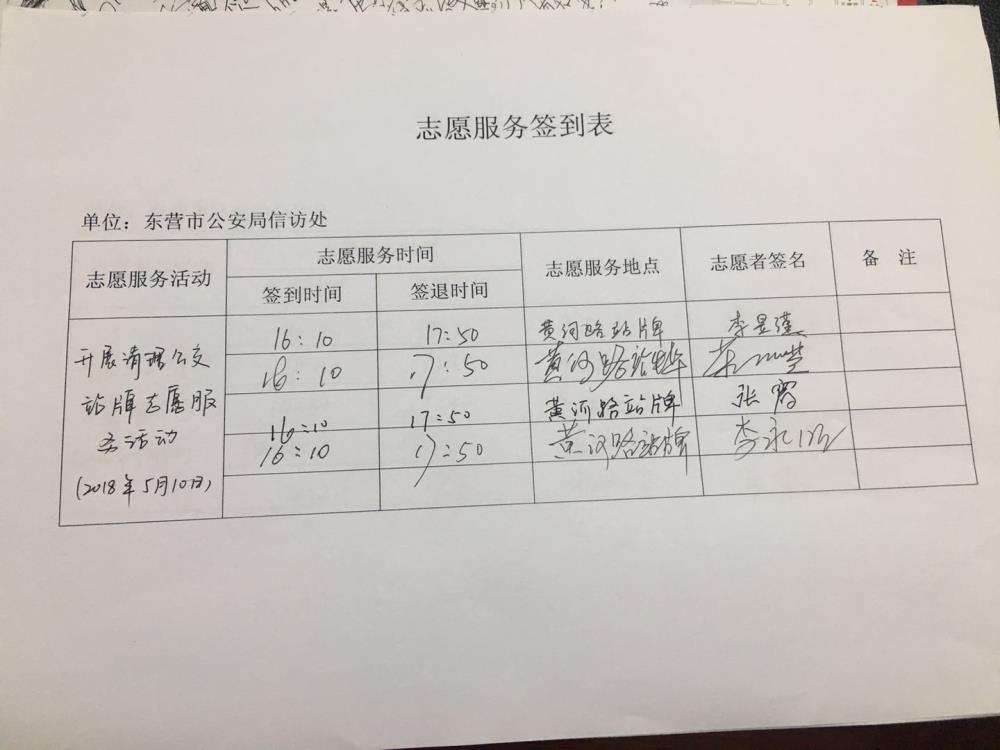 志愿服务签到表
单位：东营市公安局信访处
志愿服务活动 志愿服务时间 志愿服务地点 志愿者签名 备 注
签到时间 签退时间
开展清理公交
站牌志愿服
务活动
(2018年5月10日)
16:10 17:50 黄河路站牌 李昱瑾
16:10 17:50 黄河路站牌
16:10 17:50 黄河路站牌 张霄
16:10 17:50 黄河路站牌 李永